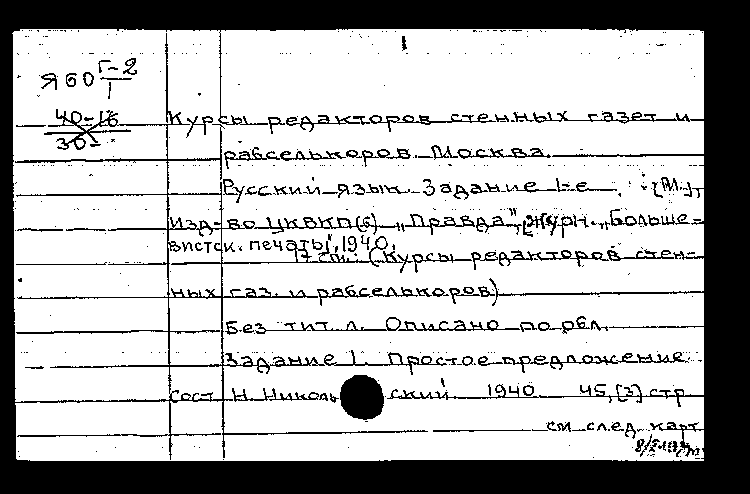 1
Я60 Г-2
1
40-16
30
Курсы редакторов стенных газет и
рабселькоров. Москва.
Русский язык. Задание 1-е. [М.],
Изд-во ЦКВКП(б) „Правда", журн. „Больше-
вистск. печать", 1940.
17 см. (Курсы редакторов стен-
ных газ. и рабселькоров)
Без тит. л. Описано по обл.
Задание 1. Простое предложение.
Сост. Н. Никольский. 1940. 45, [3] стр
см. след. карт